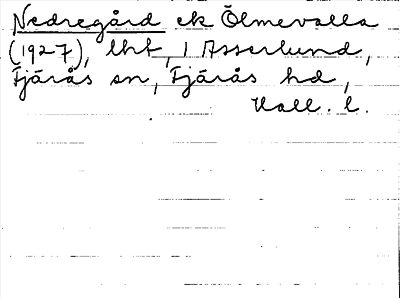 Nedregård ek Ölmevalla
(1927), lht, i Asserlund,
Fjärås sn, Fjärås hd,
Hall. l.